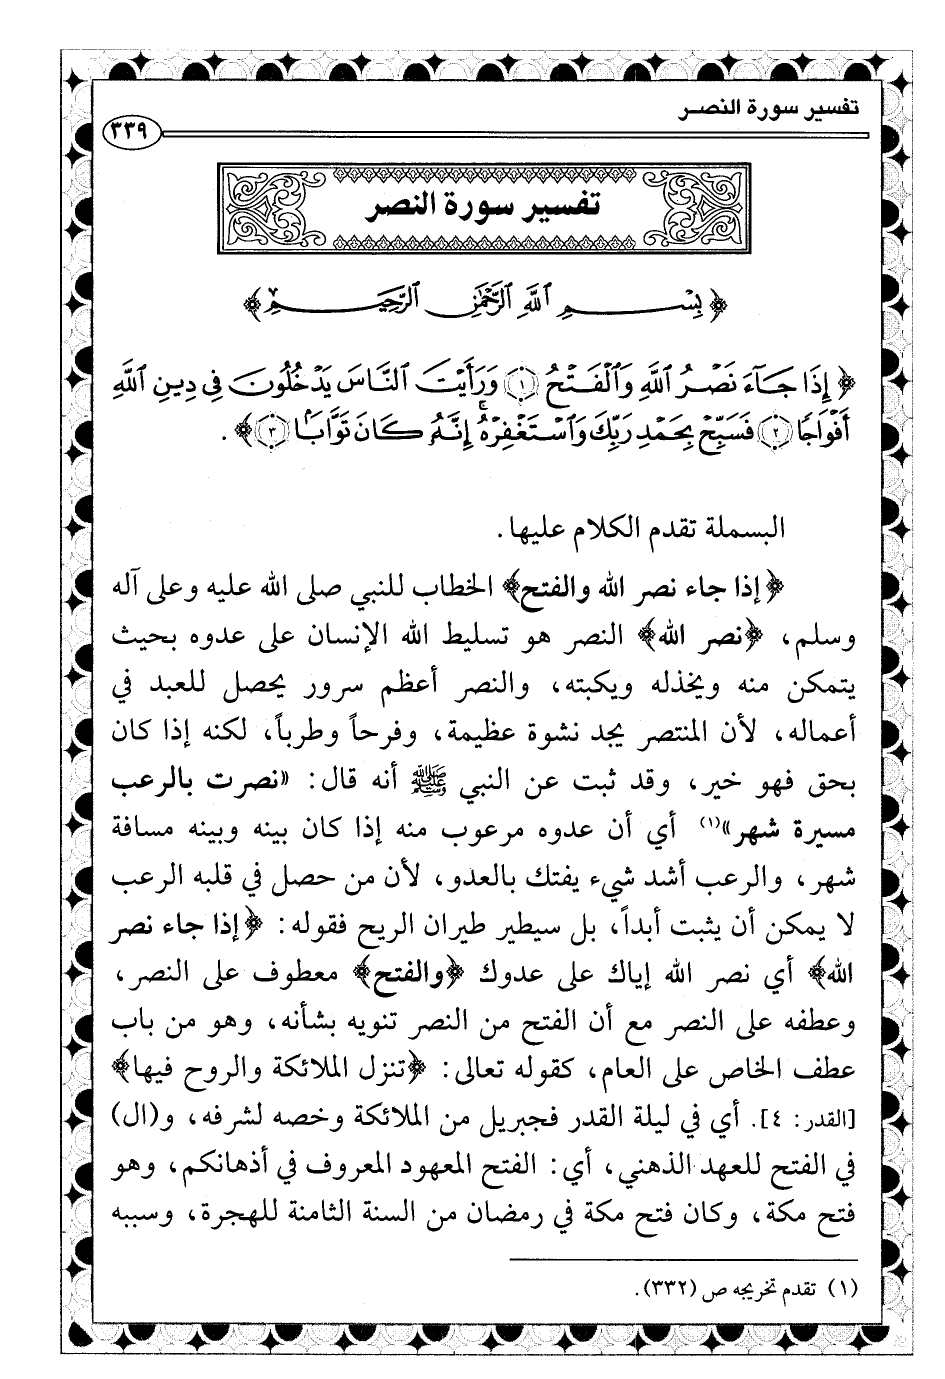 تفسير سورة النصر
٣٣٩
تفسير سورة النصر
﴿بِسْمِ اللَّهِ الرَّحْمَٰنِ الرَّحِيمِ﴾
﴿إِذَا جَآءَ نَصْرُ اللَّهِ وَالْفَتْحُ ١ وَرَأَيْتَ النَّاسَ يَدْخُلُونَ فِى دِينِ اللَّهِ
أَفْوَاجًا ٢ فَسَبِّحْ بِحَمْدِ رَبِّكَ وَاسْتَغْفِرْهُ ۚ إِنَّهُۥ كَانَ تَوَّابًۢا ٣﴾.
البسملة تقدم الكلام عليها.
﴿إذا جاء نصر الله والفتح﴾ الخطاب للنبي صلى الله عليه وعلى آله
وسلم، ﴿نصر الله﴾ النصر هو تسليط الله الإنسان على عدوه بحيث
يتمكن منه ويخذله ويكبته، والنصر أعظم سرور يحصل للعبد في
أعماله، لأن المنتصر يجد نشوة عظيمة، وفرحاً وطرباً، لكنه إذا كان
بحق فهو خير، وقد ثبت عن النبي ﷺ أنه قال: «نصرت بالرعب
مسيرة شهر»(١) أي أن عدوه مرعوب منه إذا كان بينه وبينه مسافة
شهر، والرعب أشد شيء يفتك بالعدو، لأن من حصل في قلبه الرعب
لا يمكن أن يثبت أبداً، بل سيطير طيران الريح فقوله: ﴿إذا جاء نصر
الله﴾ أي نصر الله إياك على عدوك ﴿والفتح﴾ معطوف على النصر،
وعطفه على النصر مع أن الفتح من النصر تنويه بشأنه، وهو من باب
عطف الخاص على العام، كقوله تعالى: ﴿تنزل الملائكة والروح فيها﴾
[القدر: ٤]. أي في ليلة القدر فجبريل من الملائكة وخصه لشرفه، و(ال)
في الفتح للعهد الذهني، أي: الفتح المعهود المعروف في أذهانكم، وهو
فتح مكة، وكان فتح مكة في رمضان من السنة الثامنة للهجرة، وسببه
(١) تقدم تخريجه ص (٣٣٢).